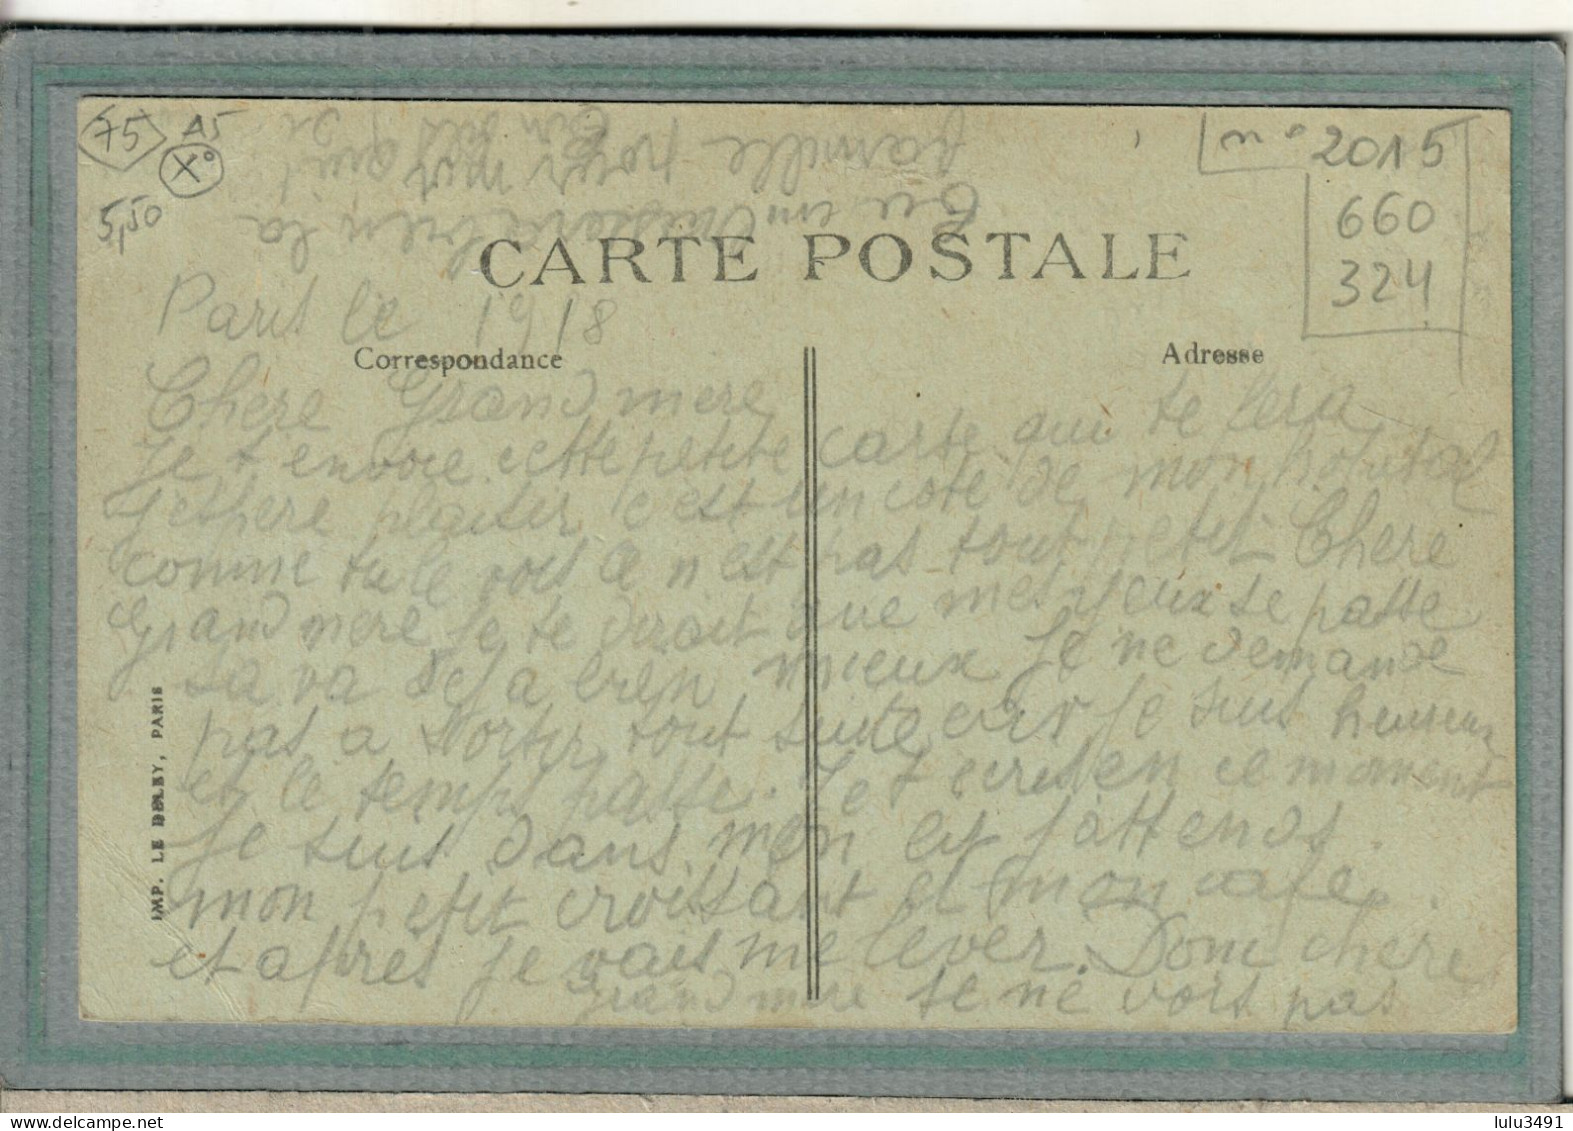 75
A5
X°
5,50
n° 2015
660
324
CARTE POSTALE
Correspondance
Adresse
IMP. LE DELEY, PARIS
Paris le 1918
Chere Grand mere
Je t'envoie cette petite carte qui te fera
j'espere plaisir c'est un coté de mon hopital
comme tu le vois ce n'est pas tout petit Chere
Grand mere je te dirait que mes yeux se passe
sa va deja bien mieux je ne demande
pas a sortir tout suite car je suis heureux
et le temps passe. Je t'ecris en ce moment
je suis dans mon lit j'attends
mon petit croissant et mon cafe.
et apres je vais me lever. Donc chere
grand mere je ne vois pas
Tu embrassera bien la
famille pour moi
Ton fils qui
lulu3491